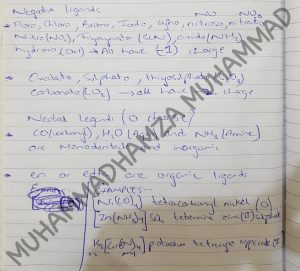 Negative ligands
NO NO₂
* Floro, Chloro, Bromo, Iodo, Cyno, nitroso, nitrato
Nitro(NO₂), thiocynato (SCN), amdo(NH₂)
hydroxo(OH) → All have (-1) charge
* Oxalato, Sulphato, thiosulphato
carbonato(CO₃) → all have charge
Neutral ligands (0 charge)
* CO(carbonyl), H₂O and NH₃ (Amine)
are Monodentate and inorganic
* en or edta are organic ligands
EXAMPLES:-
[Ni(CO)₄] tetracarbonyl nickel (0)
[Zn(NH₃)₄]SO₄ tetramine zinc (II) sulphate
K₂[Cu(CN)₄] potassium tetracyno (II)
MUHAMMADHAMZA MUHAMMAD